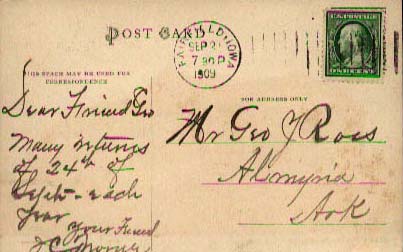 POST CARD
FAIRFIELD, IOWA
SEP 2
7 30 P
1909
U.S. POSTAGE
ONE CENT
THIS SPACE MAY BE USED FOR
CORRESPONDENCE
FOR ADDRESS ONLY
Dear Friend Geo
Many returns
of 24th of
Sept - each
year
your Friend
Mr Geo J Ross
Almyra
Ark